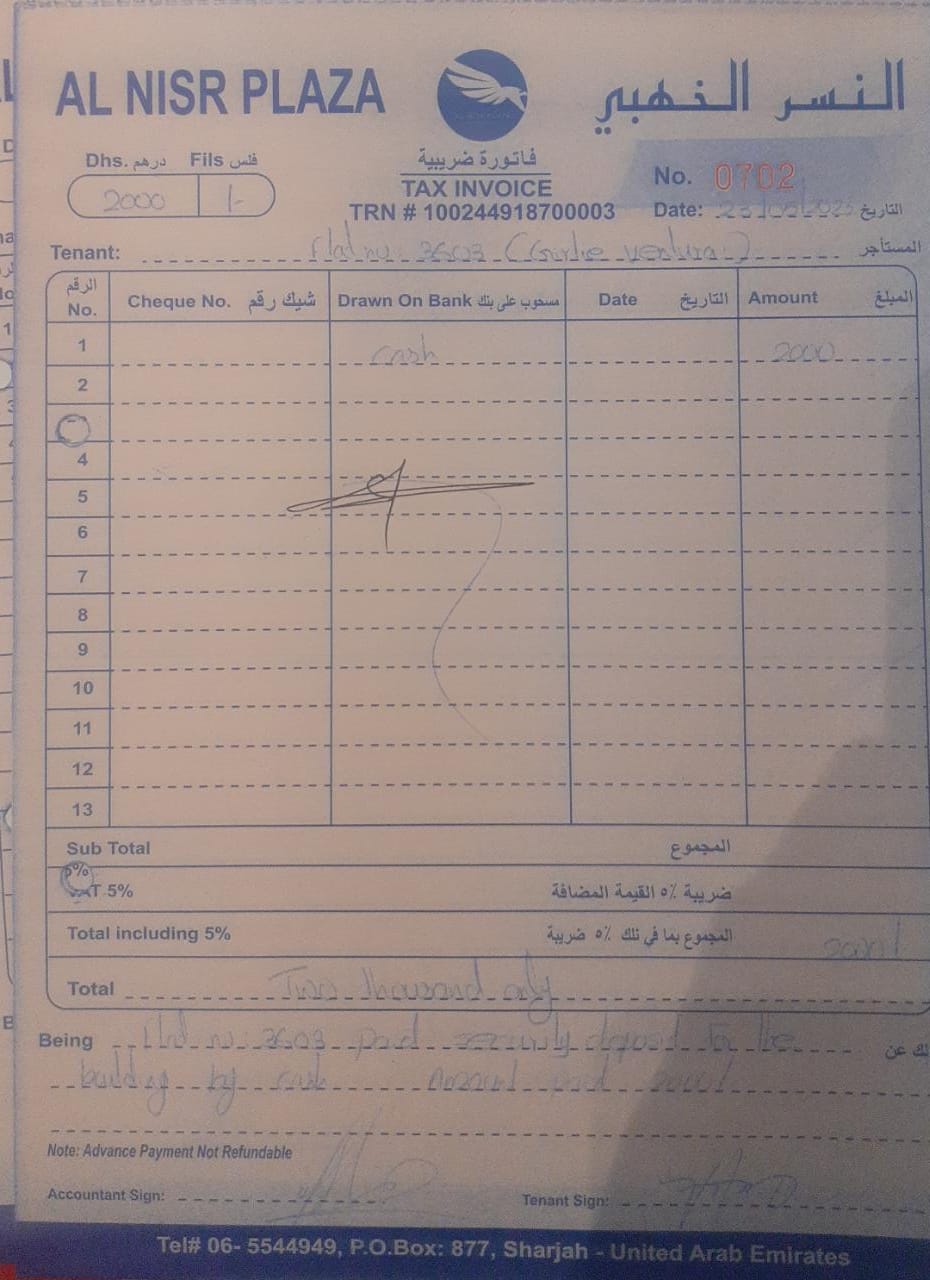 AL NISR PLAZA
النسر الذهبي
Dhs. درهم Fils فلس
2000 /-
فاتورة ضريبية
TAX INVOICE
TRN # 100244918700003
No. 0702
Date: التاريخ
Tenant: Flat no: 3603 ( ventura ) المستأجر
الرقم No. Cheque No. شيك رقم Drawn On Bank مسحوب على بنك Date التاريخ Amount المبلغ
1 cash 2000
2
4
5
6
7
8
9
10
11
12
13
Sub Total المجموع
5%
VAT 5% ضريبة ٥٪ القيمة المضافة
Total including 5% المجموع بما في ذلك ٥٪ ضريبة 2000/
Total Two thousand only
Being Flat no: 3603 paid security deposit for the لك عن
building by cash Amount paid 2000/
Note: Advance Payment Not Refundable
Accountant Sign: Tenant Sign:
Tel# 06- 5544949, P.O.Box: 877, Sharjah - United Arab Emirates